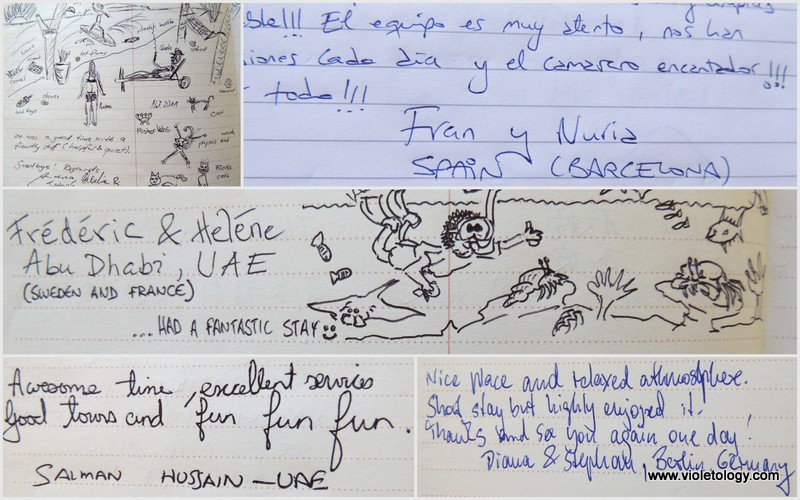 11.2.2011
cat
It was a good time with a
friendly staff (helpful & quiet).
ble!!! El equipo es muy atento, nos han
iones cada día y el camarero encantador!!!
todo!!!
Fran y Nuria
SPAIN (BARCELONA)
Frédéric & Heléne
Abu Dhabi, UAE
(SWEDEN AND FRANCE)
...HAD A FANTASTIC STAY
Awesome time, excellent services
Good tours and fun fun fun.
SALMAN HUSSAIN - UAE
Nice place and relaxed athmosphere.
Short stay but highly enjoyed it.
Thanks and see you again one day!
Diana & Stephan, Berlin, Germany
www.violetology.com